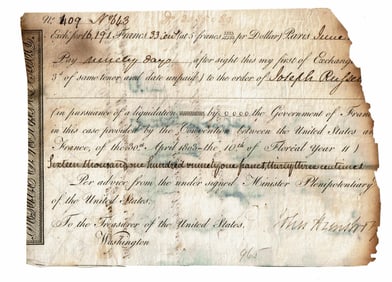 No. 409 No. 643
Exch. for 16,191 Francs 33 cent (at 5 francs per Dollar) Paris June
Pay ninety days after sight this my first of Exchange
3d of same tenor & date unpaid) to the order of Joseph
(in pursuance of a liquidation by the Government of Fran
in this case provided by the Convention between the United States an
France, of the 30th April 1803 the 10th of Floreal Year 11)
Sixteen thousand one hundred ninety one francs thirty three centimes
Per advice from the under signed Minister Plenipotentiary
of the United States.
To the Treasurer of the United States.
Washington
965